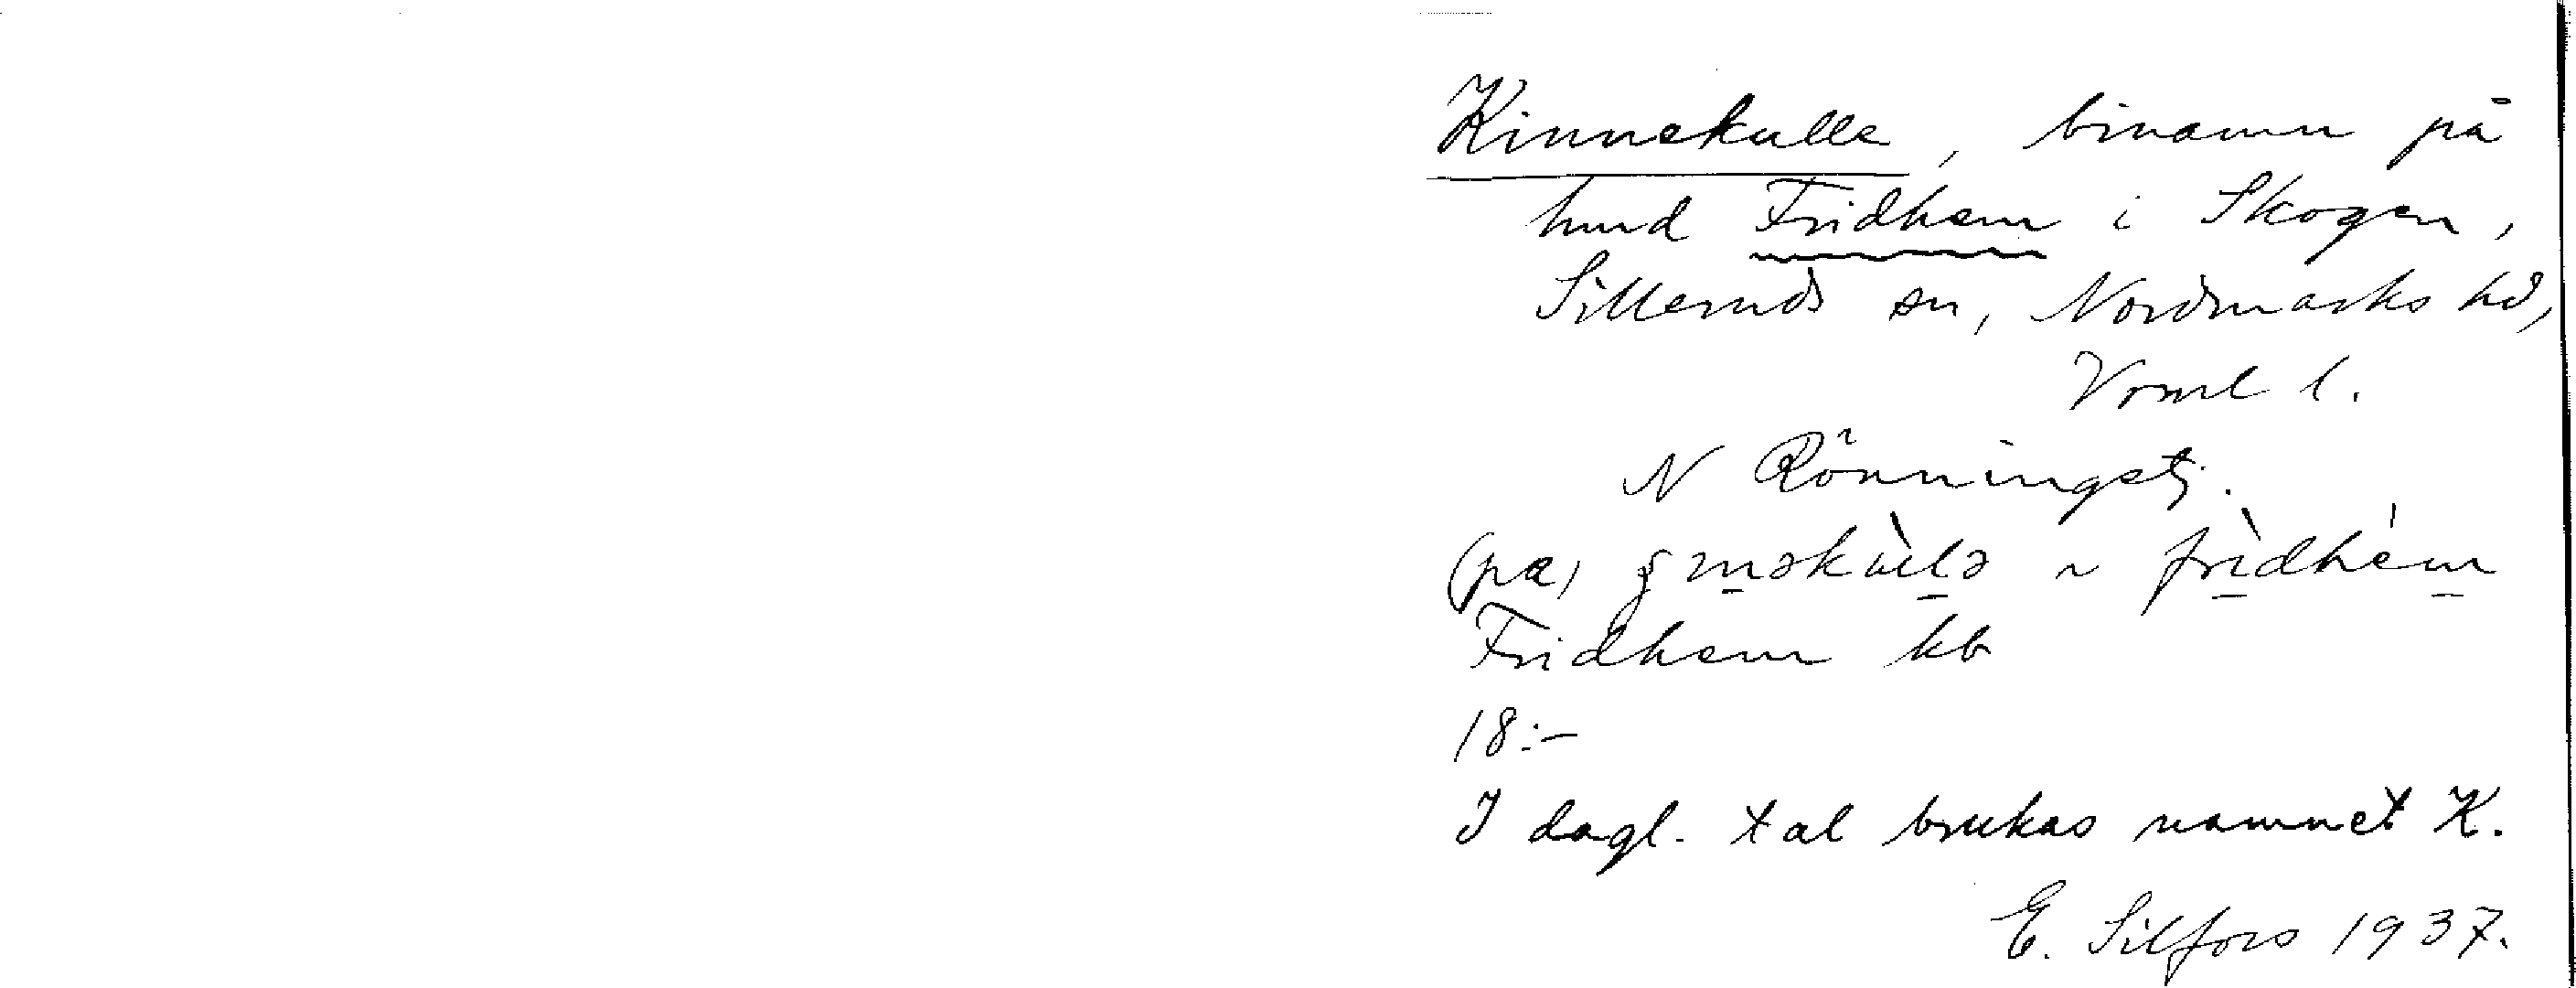 Kinnekulle, binamn på
hmd Fridhem i Skogen,
Silleruds sn, Nordmarks hd,
Vrml l.
N Rönningstj.
(pa) ɟinəkùlə ~ frìdhém
Fridhem kb
18:-
I dagl. tal brukas namnet K.
E. Silfors 1937.